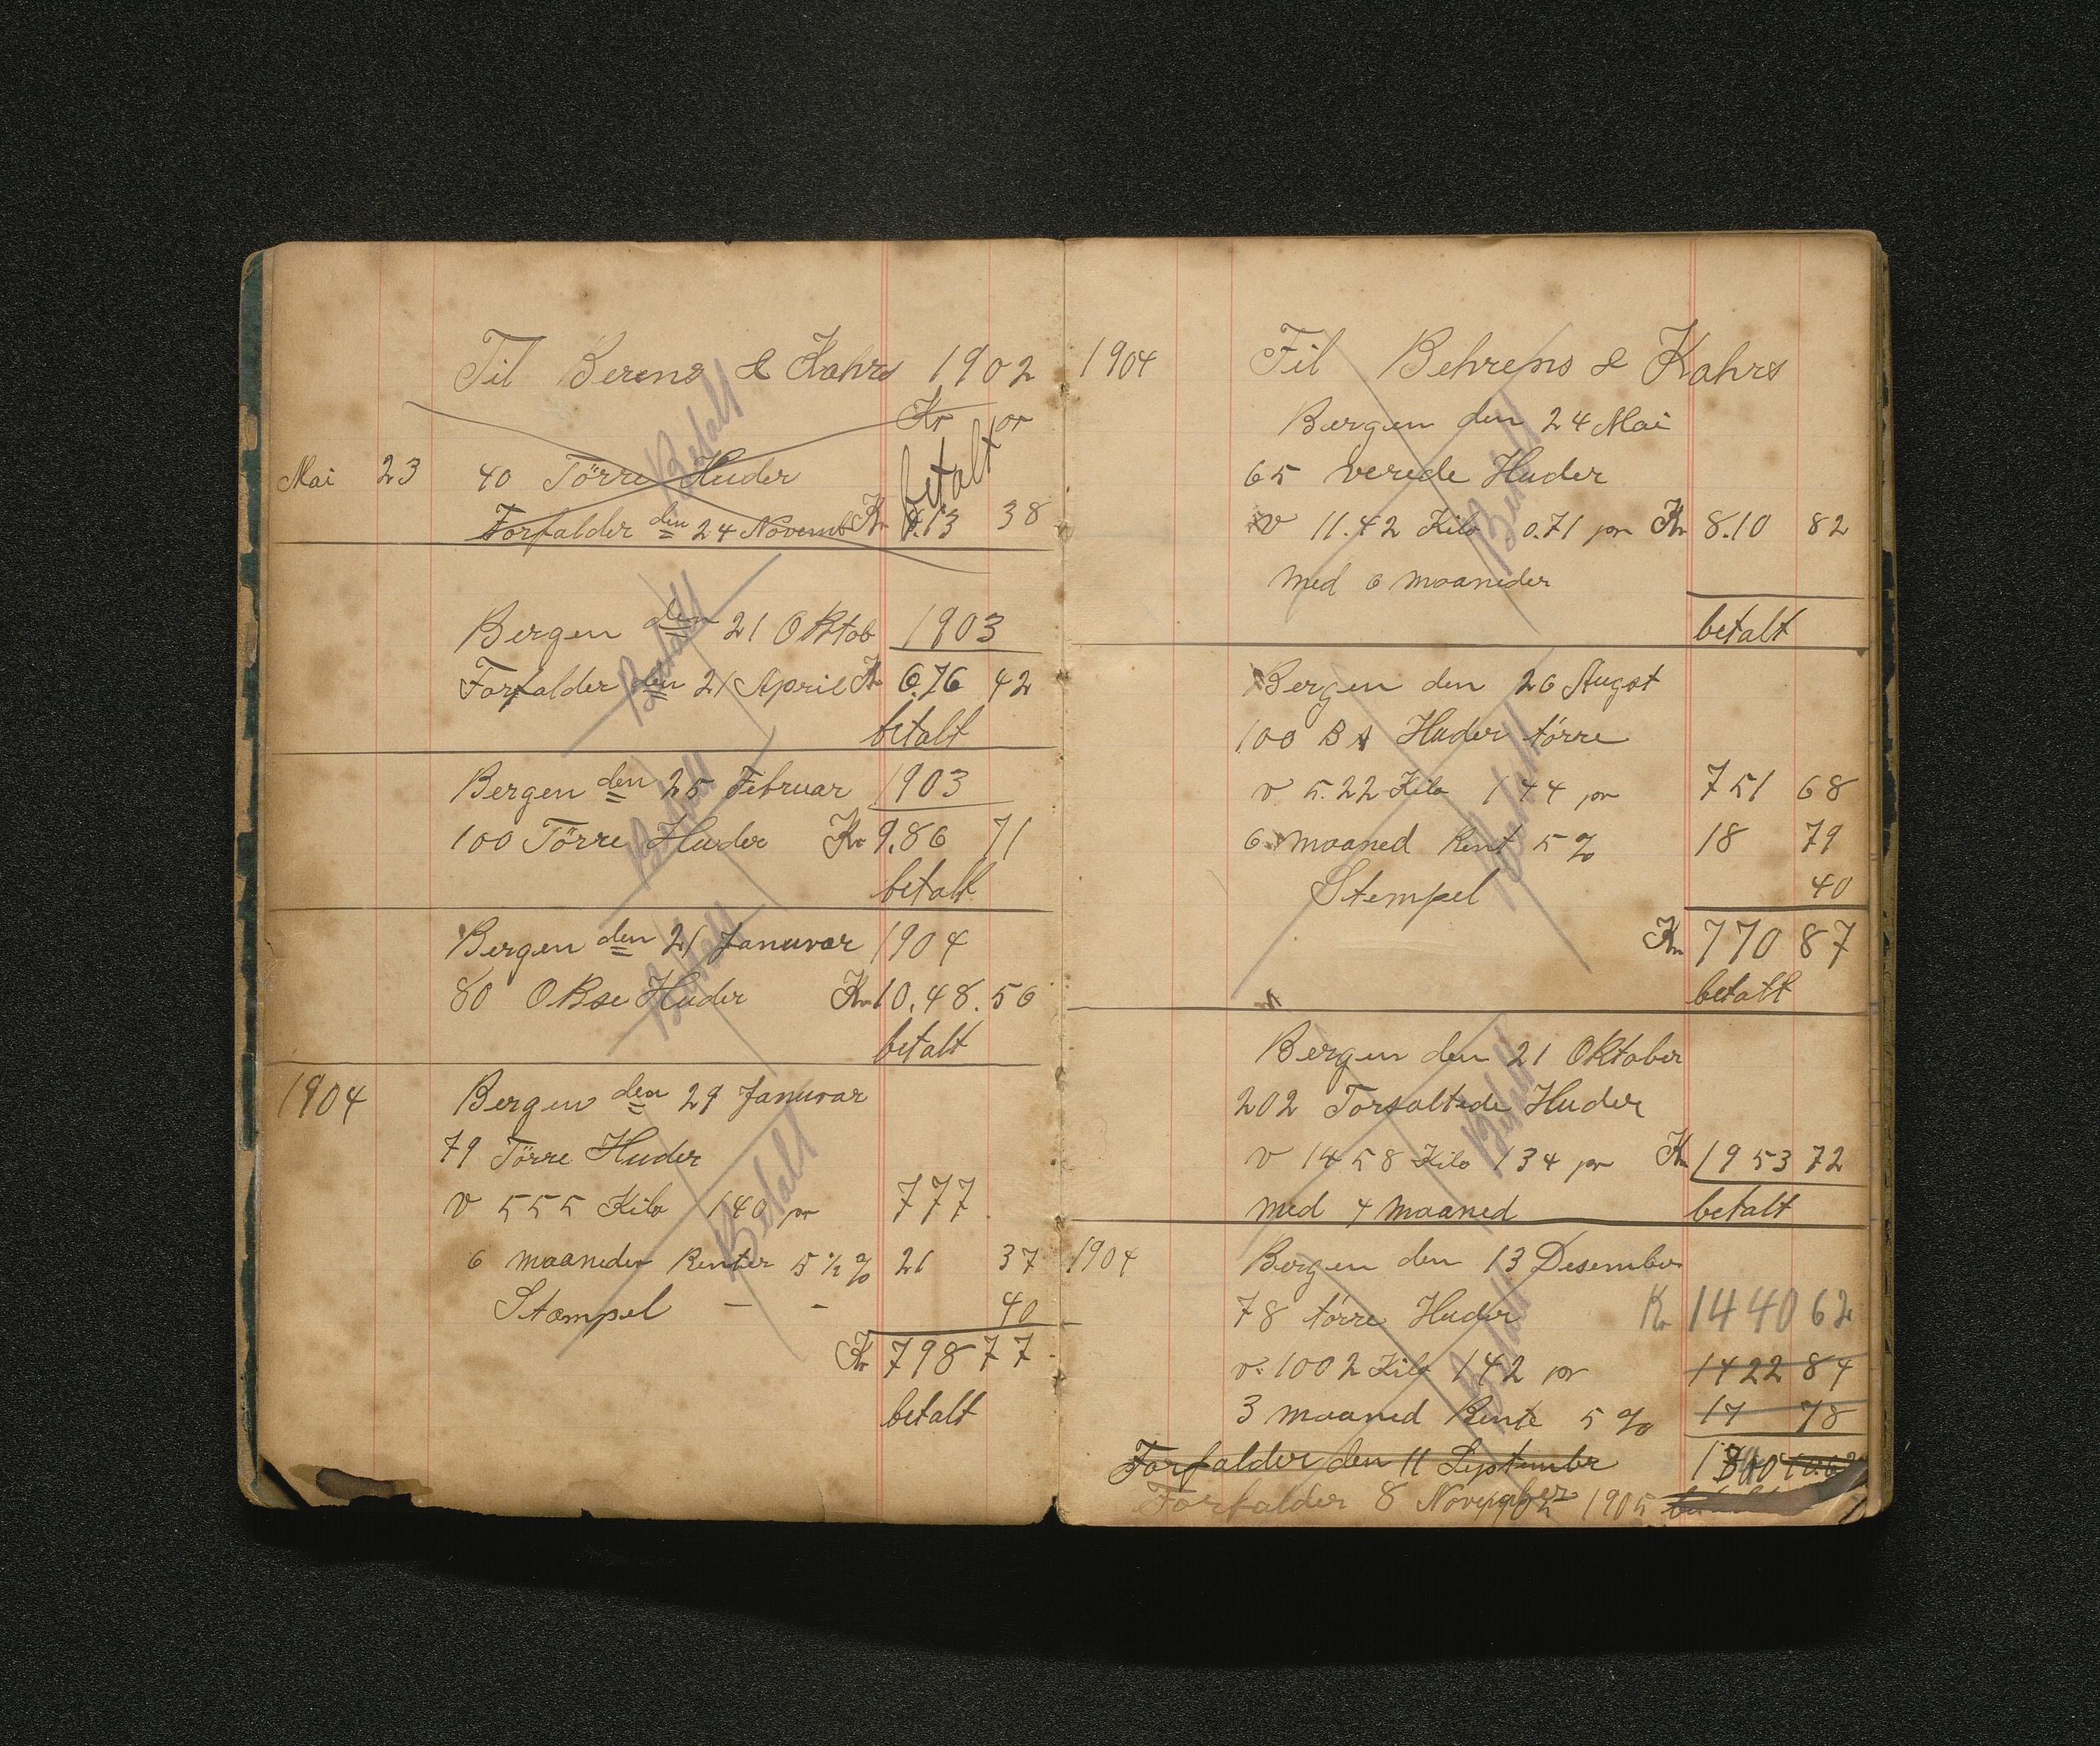 Til Berens & Kahrs 1902
Kr or
betalt
Mai 23 40 Törre Huder
Forfalder den 24 Novemb Kr 13 38
Betalt
Bergen den 21 Oktob 1903
Forfalder den 21 April Kr 6.76 42
betalt
Betalt
Bergen den 25 Februar 1903
100 Törre Huder Kr 9.86 71
betalt
Betalt
Bergen den 21 Januvar 1904
80 Okse Huder Kr 10.48.56
betalt
Betalt
1904 Bergen den 29 Januvar
79 Törre Huder
v 555 Kilo 140 pr 777
6 maaneder Renter 5 ½ % 21 37
Stempel - - 40
Kr 798 77
betalt
Betalt
1904 Til Behrens & Kahrs
Bergen den 24 Mai
65 verede Huder
v 11.42 Kilo 0.71 pr Kr 8.10 82
med 6 maaneder
betalt
Betalt
Bergen den 26 Augst
100 B A Huder törre
v 5.22 Kilo 144 pr 751 68
6 maaned Rent 5 % 18 79
Stempel 40
Kr 770 87
betalt
Betalt
Bergen den 21 Oktober
202 Torsaltede Huder
v 1458 Kilo 134 pr Kr 1953 72
med 4 maaned betalt
Betalt
1904 Bergen den 13 Desember
78 törre Huder Kr 1440 62
v. 1002 Kilo 142 pr 1422 84
3 maaned Rente 5 % 17 78
Betalt
Forfalder den 11 Septembr
Forfalder 8 November 1905